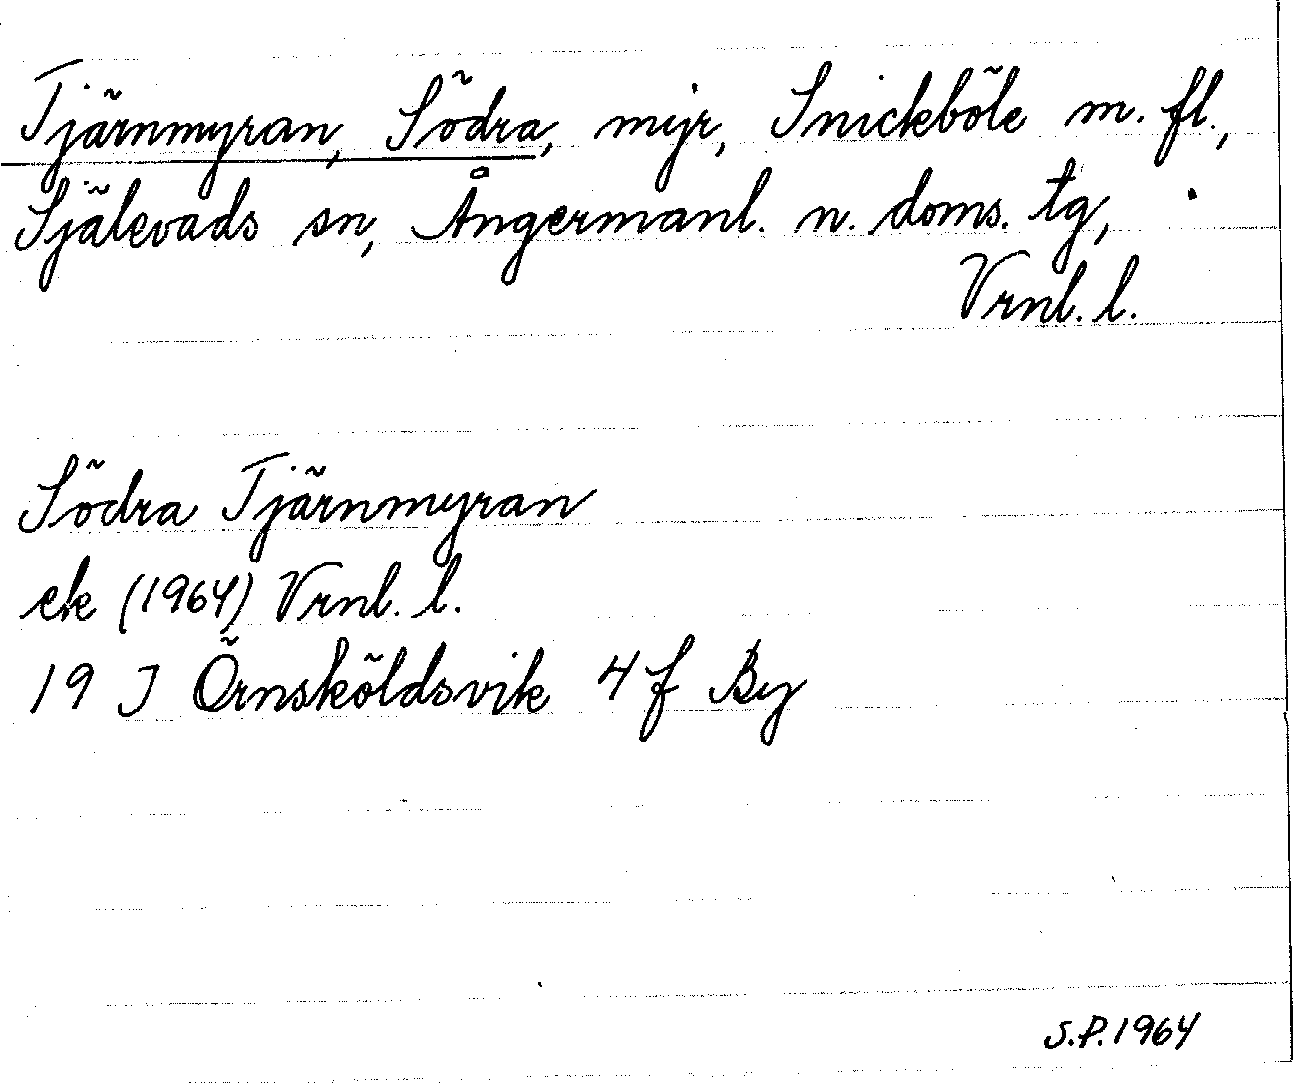 Tjärnmyran, Södra, myr, Snickböle m. fl.,
Själevads sn, Ångermanl. n. doms. tg,
Vrnl. l.
Södra Tjärnmyran
ek (1964) Vrnl. l.
19 J Örnsköldsvik 4f By
S.P. 1964